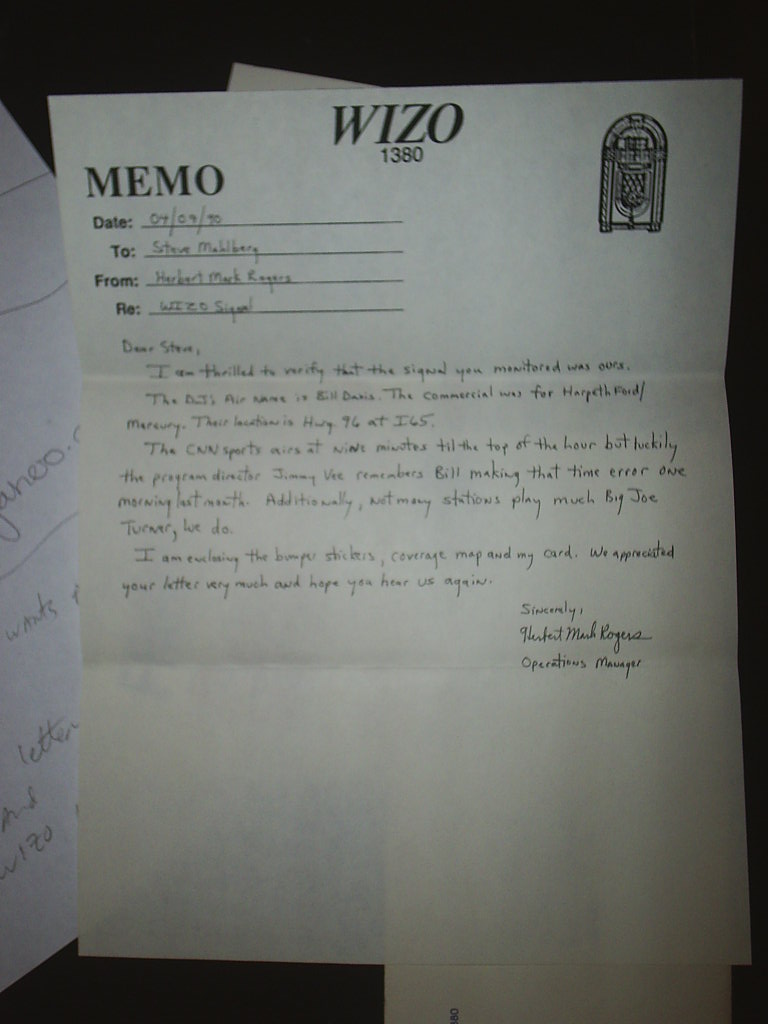 WIZO
1380
MEMO
Date: 04/09/90
To: Steve Mahlberg
From: Herbert Mark Rogers
Re: WIZO Signal
Dear Steve,
I am thrilled to verify that the signal you monitored was ours.
The DJ's Air name is Bill Davis. The commercial was for Harpeth Ford/
Mercury. Their location is Hwy. 96 at I65.
The CNN sports airs at nine minutes til the top of the hour but luckily
the program director Jimmy Vee remembers Bill making that time error one
morning last month. Additionally, not many stations play much Big Joe
Turner, we do.
I am enclosing the bumper stickers, coverage map and my card. We appreciated
your letter very much and hope you hear us again.
Sincerely,
Herbert Mark Rogers
Operations Manager
wants
letter
And
WIZO